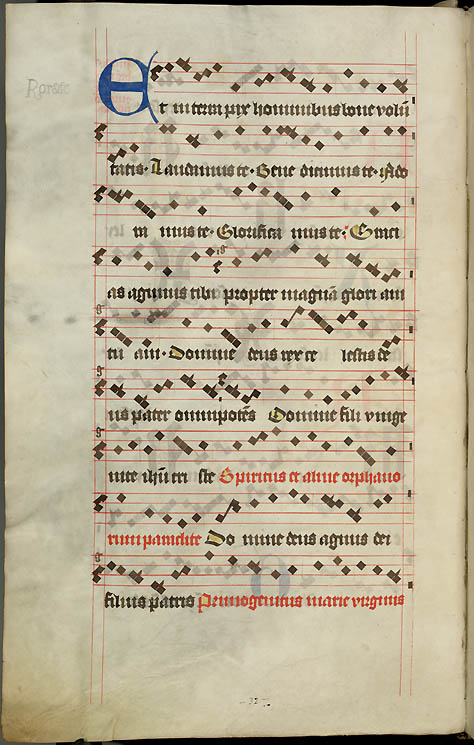 Et in terra pax hominibus bone volū
tatis · Laudamus te · Bene dicimus te · Ado
ra mus te · Glorifica mus te : Graci
as agimus tibi propter magnā glori am
tu am · Domine deus rex ce lestis de
us pater omnipotēs Domine fili vnige
nite ihū cri ste Spiritus et alme orphano
rum paraclite Do mine deus agnus dei
filius patris Primogenitus marie virginis